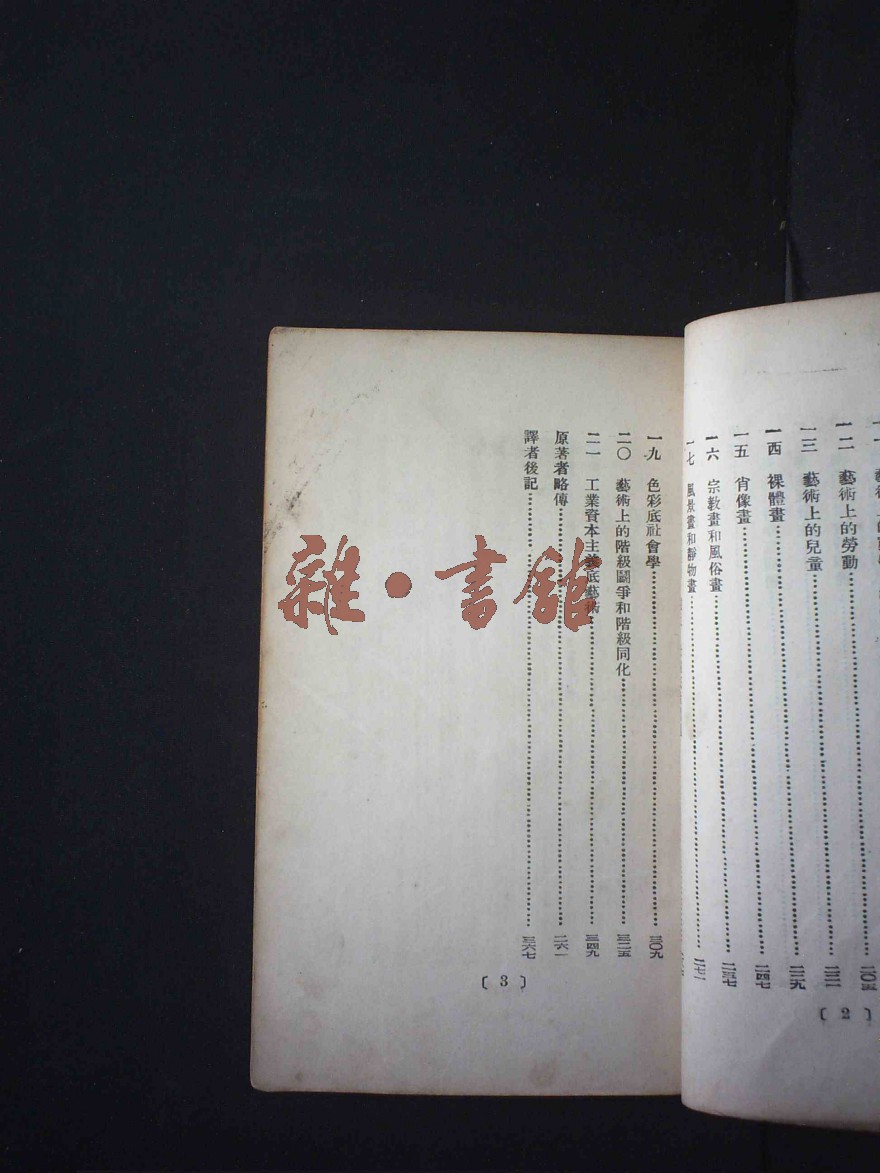 一二 藝術上的勞動
一三 藝術上的兒童
一四 裸體畫……二四七
一五 肖像畫……二五七
一六 宗教畫和風俗畫……二七一
一七 風景畫和靜物畫
〔2〕
一九 色彩底社會學……三〇九
二〇 藝術上的階級鬪爭和階級同化……三二五
二一 工業資本主義底藝術……三四九
原著者略傳……二六一
譯者後記……三六七
〔3〕
雜·書館